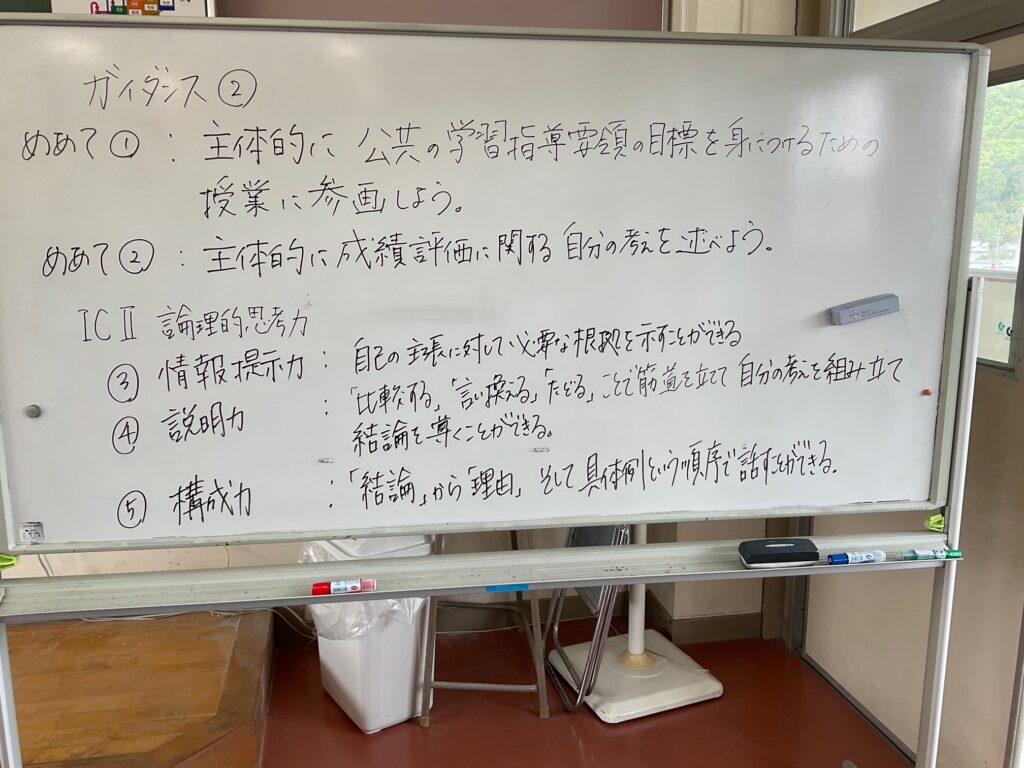 ガイダンス②
めあて① : 主体的に 公共の学習指導要領の目標を身につけるための
授業に参画しよう。
めあて② : 主体的に成績評価に関する自分の考えを述べよう。
ICⅡ 論理的思考力
③ 情報提示力 : 自己の主張に対して必要な根拠を示すことができる
④ 説明力 : 「比較する」「言い換える」「たどる」ことで筋道を立てて自分の考えを組み立て
結論を導くことができる。
⑤ 構成力 : 「結論」から「理由」そして具体例という順序で話すことができる。